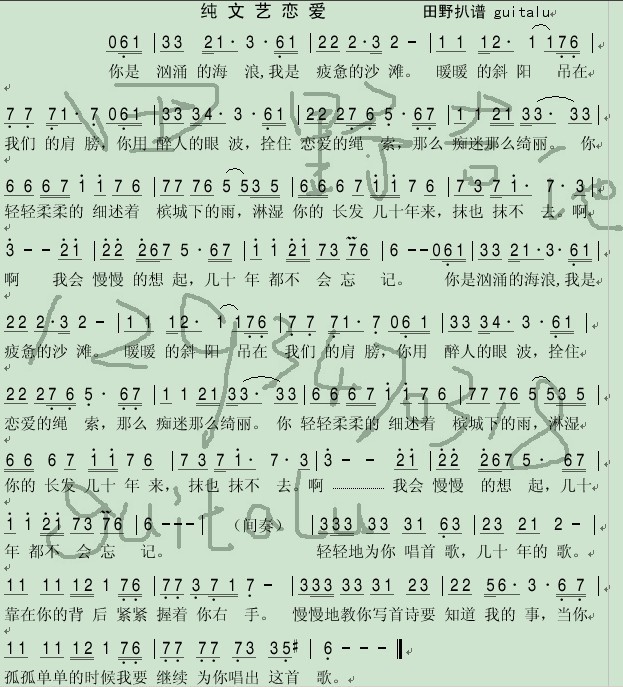 纯文艺恋爱 田野扒谱 guitalu
061 | 33 21· 3 ·61 | 22 2·3 2 - | 1 1 12· 1 176 |
你是 汹涌 的海 浪,我是 疲惫的沙 滩。 暖暖 的斜 阳 吊在
7 7 71· 7 061 | 33 34· 3 ·61 | 22 276 5 ·67 | 1 1 21 33· 33 |
我们 的肩 膀，你用 醉人的眼 波，拴住 恋爱的绳 索，那么 痴迷那么绮丽。 你
6 6 6 7 1 1 7 6 | 77 76 5 535 | 6 6 6 7 1 1 7 6 | 7 3 7 1· 7· 3 |
轻轻柔柔的 细述着 槟城下的雨，淋湿 你的 长发 几十年来，抹也 抹不 去。啊
3 - - 21 | 22 267 5 · 67 | 1 1 21 73 76 | 6 - - 061 | 33 21·3·61 |
啊 我会 慢慢 的想 起，几十 年 都不 会 忘 记。 你是汹涌的海浪,我是
22 2·3 2 - | 1 1 12· 1 176 | 7 7 71· 7 061 | 33 34· 3 ·61 |
疲惫的沙 滩。 暖暖 的斜 阳 吊在 我们 的肩 膀，你用 醉人的眼 波，拴住
22 276 5 ·67 | 1 1 21 33· 33 | 6 6 6 7 1 1 7 6 | 77 76 5 535 |
恋爱的绳 索，那么 痴迷那么绮丽。 你 轻轻柔柔的 细述着 槟城下的雨，淋湿
66 67 1 1 7 6 | 7 3 7 1· 7· 3 | 3 - - 21 | 22 267 5· 67 |
你的 长发 几十 年 来，抹也 抹不 去。啊 ………… 我会 慢慢 的想 起，几十
1 1 21 73 76 | 6 --- | （间奏） | 333 33 31 63 | 23 21 2 - |
年 都不 会 忘 记。 轻轻地为你 唱首 歌，几十 年的 歌。
11 11 12 1 76 | 77 3 7 1 7 - | 333 33 31 23 | 22 56· 3 ·67 |
靠在你的背 后 紧紧 握着 你右 手。 慢慢地教你写首诗要 知道 我的 事，当你
11 11 12 1 76 | 77 77 73 35# | 6 - - - ‖
孤孤单单的时候我要 继续 为你唱出 这首 歌。
田野吉他
1293470318
guitalu